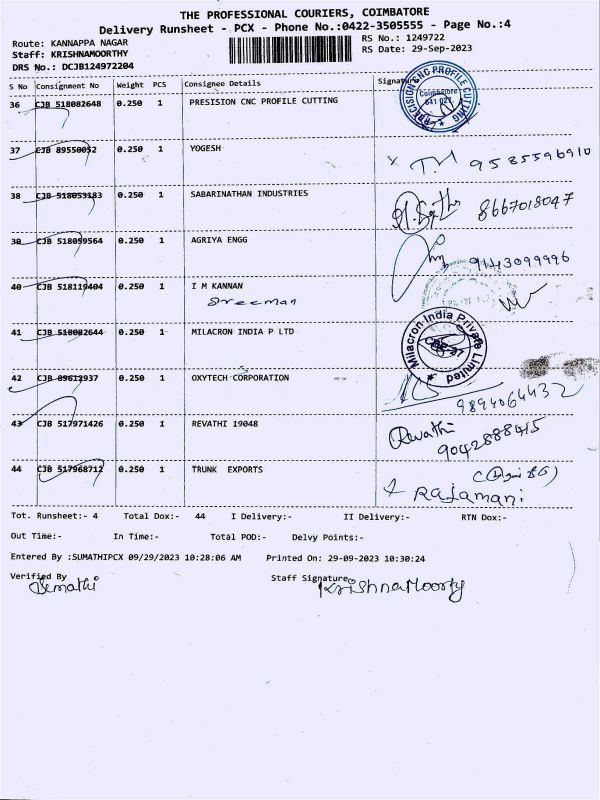 THE PROFESSIONAL COURIERS, COIMBATORE
Delivery Runsheet - PCX - Phone No.:0422-3505555 - Page No.:4
Route: KANNAPPA NAGAR
RS No.: 1249722
Staff: KRISHNAMOORTHY
RS Date: 29-Sep-2023
DRS No.: DCJB124972204
S No Consignment No Weight PCS Consignee Details Signature
36 CJB 518082648 0.250 1 PRESISION CNC PROFILE CUTTING
PRECISION CNC PROFILE CUTTING
Coimbatore
641 027
37 CJB 89550052 0.250 1 YOGESH
9585596910
38 CJB 518053183 0.250 1 SABARINATHAN INDUSTRIES
8667018047
39 CJB 518059564 0.250 1 AGRIYA ENGG
9143099996
40 CJB 518119404 0.250 1 I M KANNAN
Sreeman
41 CJB 518082644 0.250 1 MILACRON INDIA P LTD
Milacron India Private Limited
42 CJB 89612937 0.250 1 OXYTECH CORPORATION
9894064432
43 CJB 517971426 0.250 1 REVATHI 19048
Revathi
9042888415
44 CJB 517968712 0.250 1 TRUNK EXPORTS
Rajamani
Tot. Runsheet:- 4 Total Dox:- 44 I Delivery:- II Delivery:- RTN Dox:-
Out Time:- In Time:- Total POD:- Delvy Points:-
Entered By :SUMATHIPCX 09/29/2023 10:28:06 AM Printed On: 29-09-2023 10:30:24
Verified By
Staff Signature
KrishnaMoorty